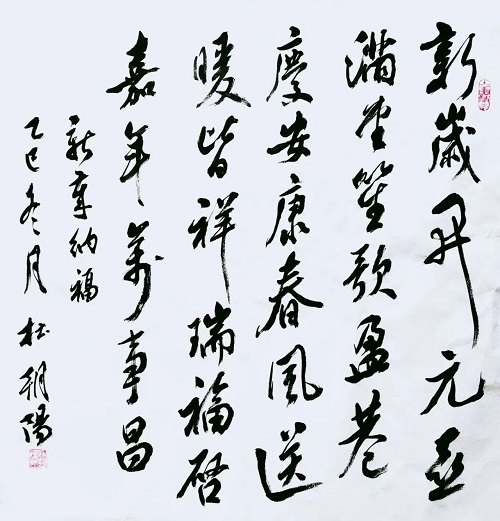 新歲開元喜
滿堂笙歌盈巷
慶安康春風送
暖皆祥瑞福启
嘉年萬事昌
新 納福
乙巳冬月 杜朝陽